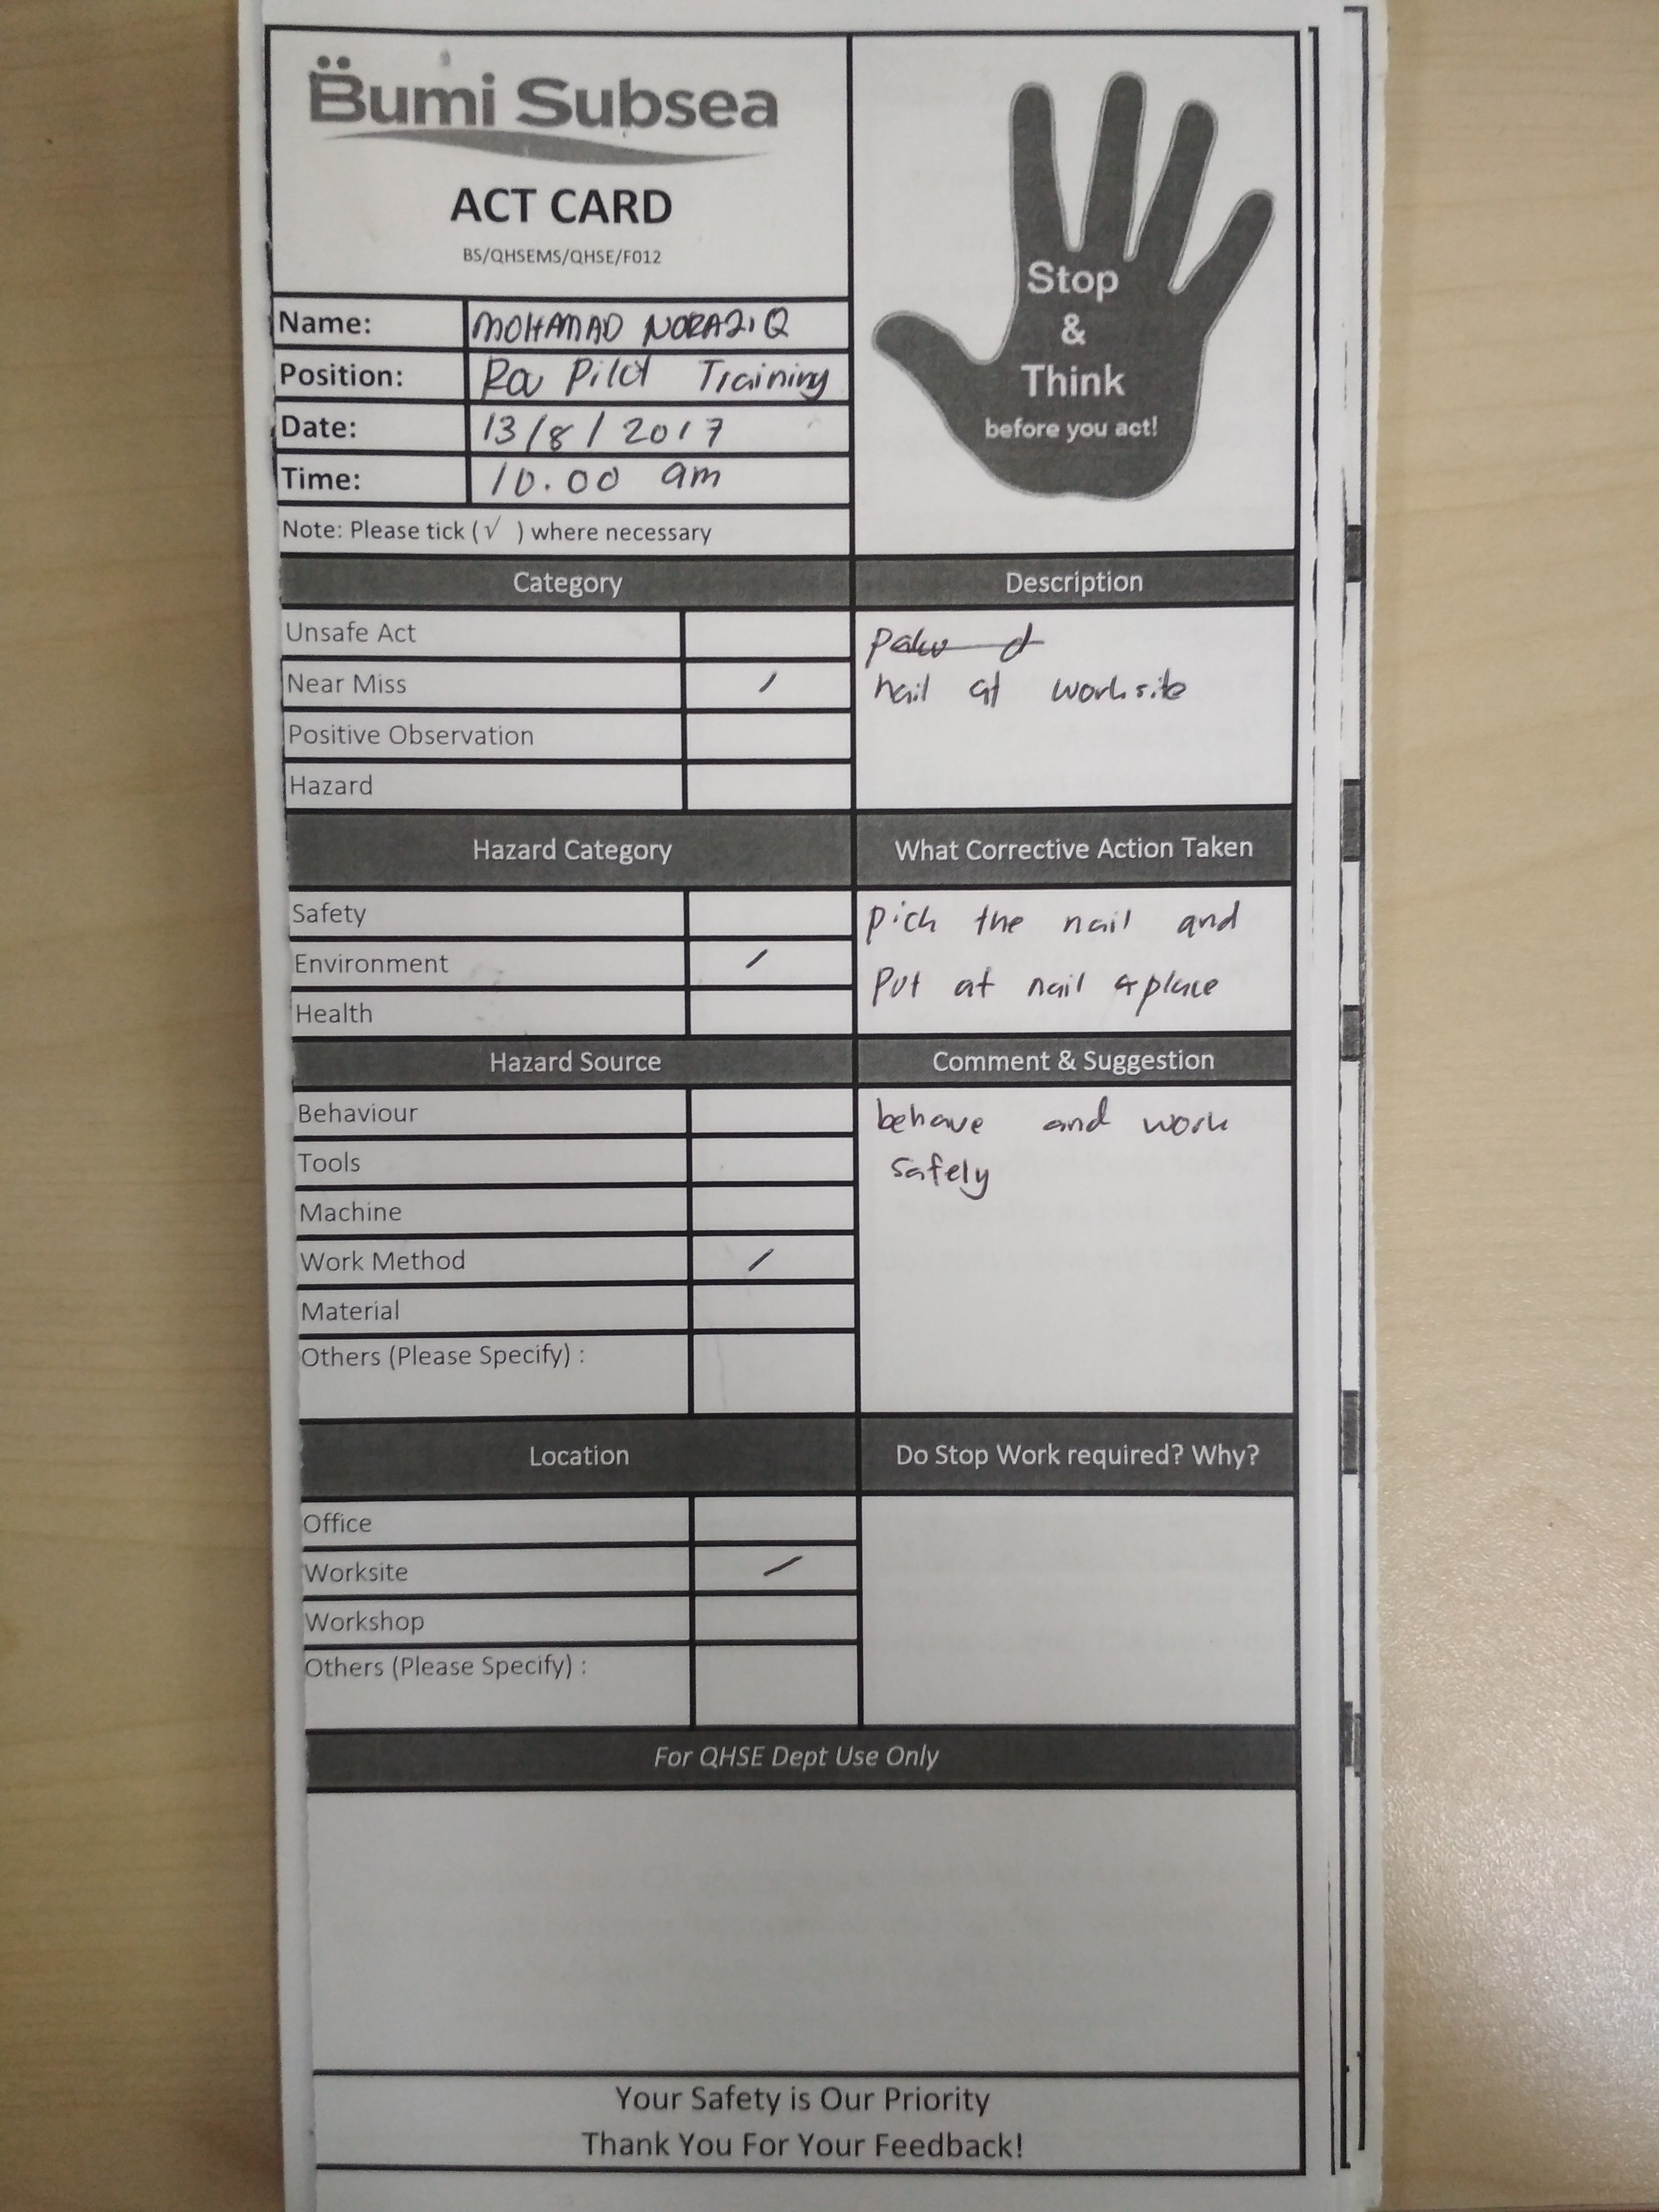 Bumi Subsea
ACT CARD
BS/QHSEMS/QHSE/F012
Stop
&
Think
before you act!
Name: MOHAMAD NORAZIQ
Position: Pilot Training
Date: 13/8/2017
Time: 10.00 am
Note: Please tick (√ ) where necessary
Category
Unsafe Act
Near Miss /
Positive Observation
Hazard
Description
nail at worksite
Hazard Category
Safety
Environment /
Health
What Corrective Action Taken
pick the nail and
Put at nail place
Hazard Source
Behaviour
Tools
Machine
Work Method /
Material
Others (Please Specify) :
Comment & Suggestion
behave and work
safely
Location
Office
Worksite /
Workshop
Others (Please Specify) :
Do Stop Work required? Why?
For QHSE Dept Use Only
Your Safety is Our Priority
Thank You For Your Feedback!